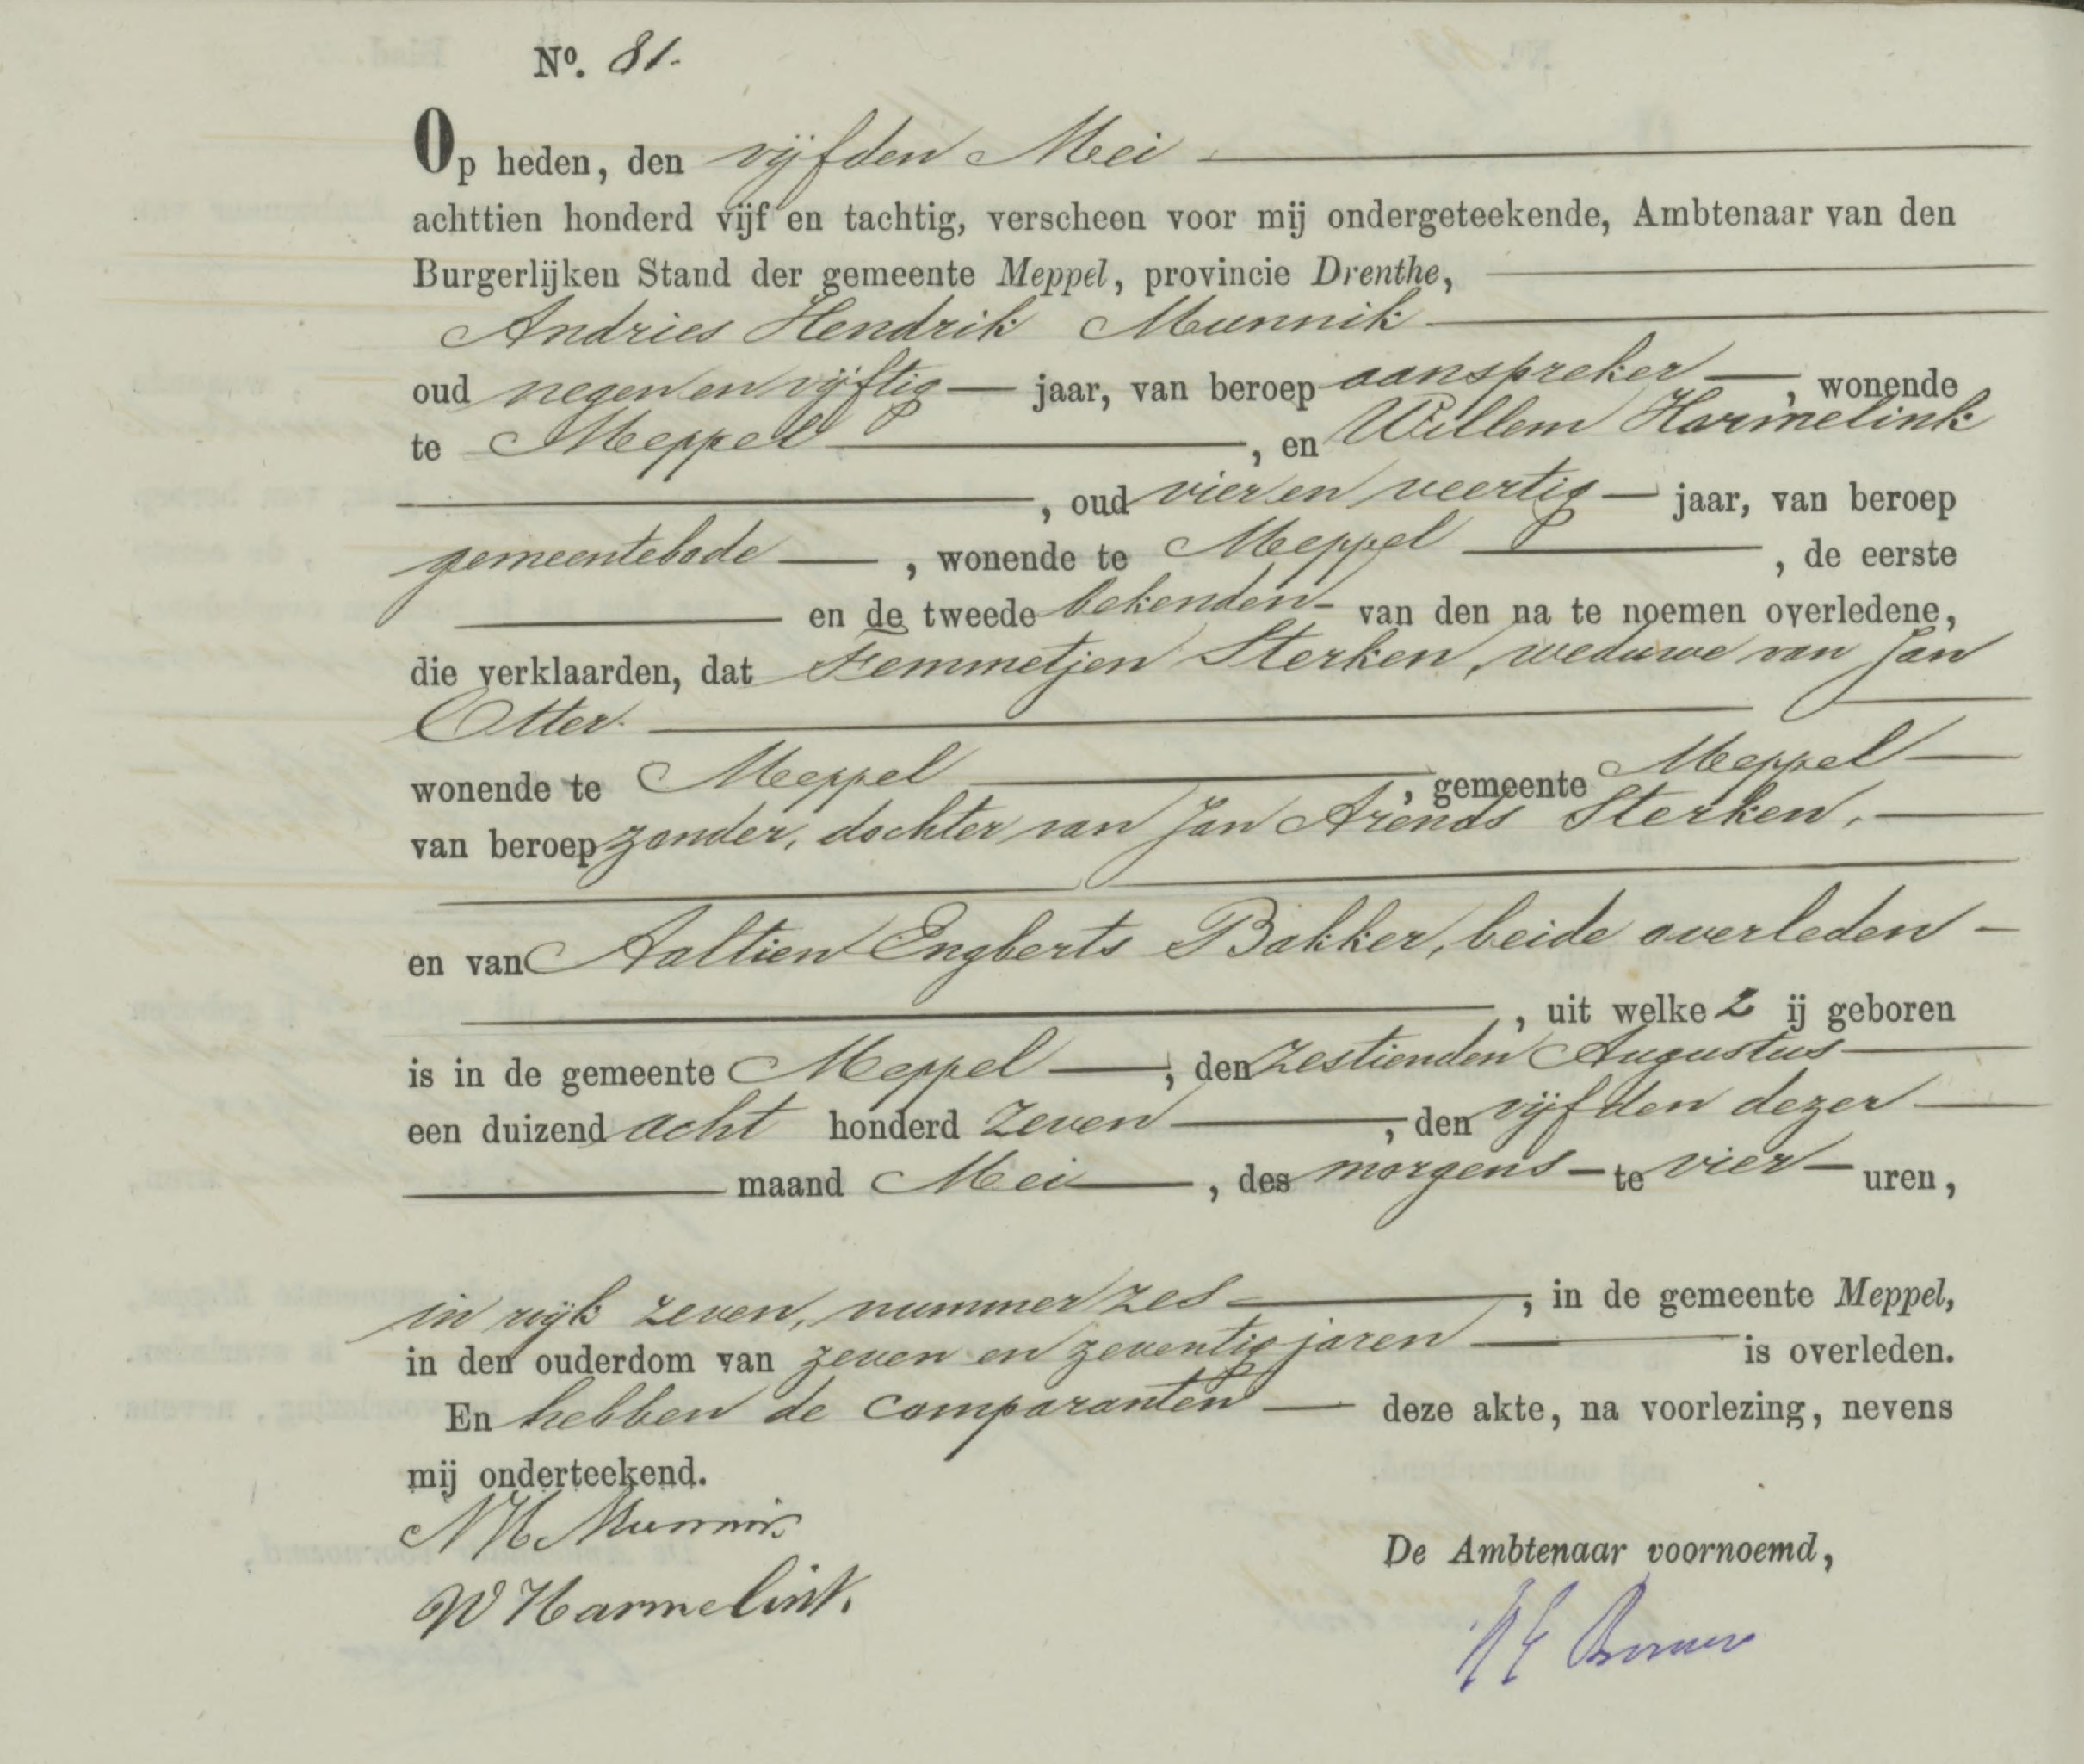 No. 81.
Op heden, den vijfden Mei
achttien honderd vijf en tachtig, verscheen voor mij ondergeteekende, Ambtenaar van den
Burgerlijken Stand der gemeente Meppel, provincie Drenthe,
Andries Hendrik Munnik
oud negen en vijftig jaar, van beroep aanspreker, wonende
te Meppel, en Willem Harmelink
, oud vier en veertig jaar, van beroep
gemeentebode, wonende te Meppel, de eerste
en de tweede bekenden van den na te noemen overledene,
die verklaarden, dat Femmetjen Sterken, weduwe van Jan
Otter
wonende te Meppel, gemeente Meppel
van beroep zonder, dochter van Jan Arends Sterken,
en van Aaltien Engberts Bakker, beide overleden
, uit welke zij geboren
is in de gemeente Meppel, den zestienden Augustus
een duizend acht honderd zeven, den vijfden dezer
maand Mei, des morgens te vier uren,
in wijk zeven, nummer zes, in de gemeente Meppel,
in den ouderdom van zeven en zeventig jaren is overleden.
En hebben de comparanten deze akte, na voorlezing, nevens
mij onderteekend.
AH Munnik
W Harmelink.
De Ambtenaar voornoemd,